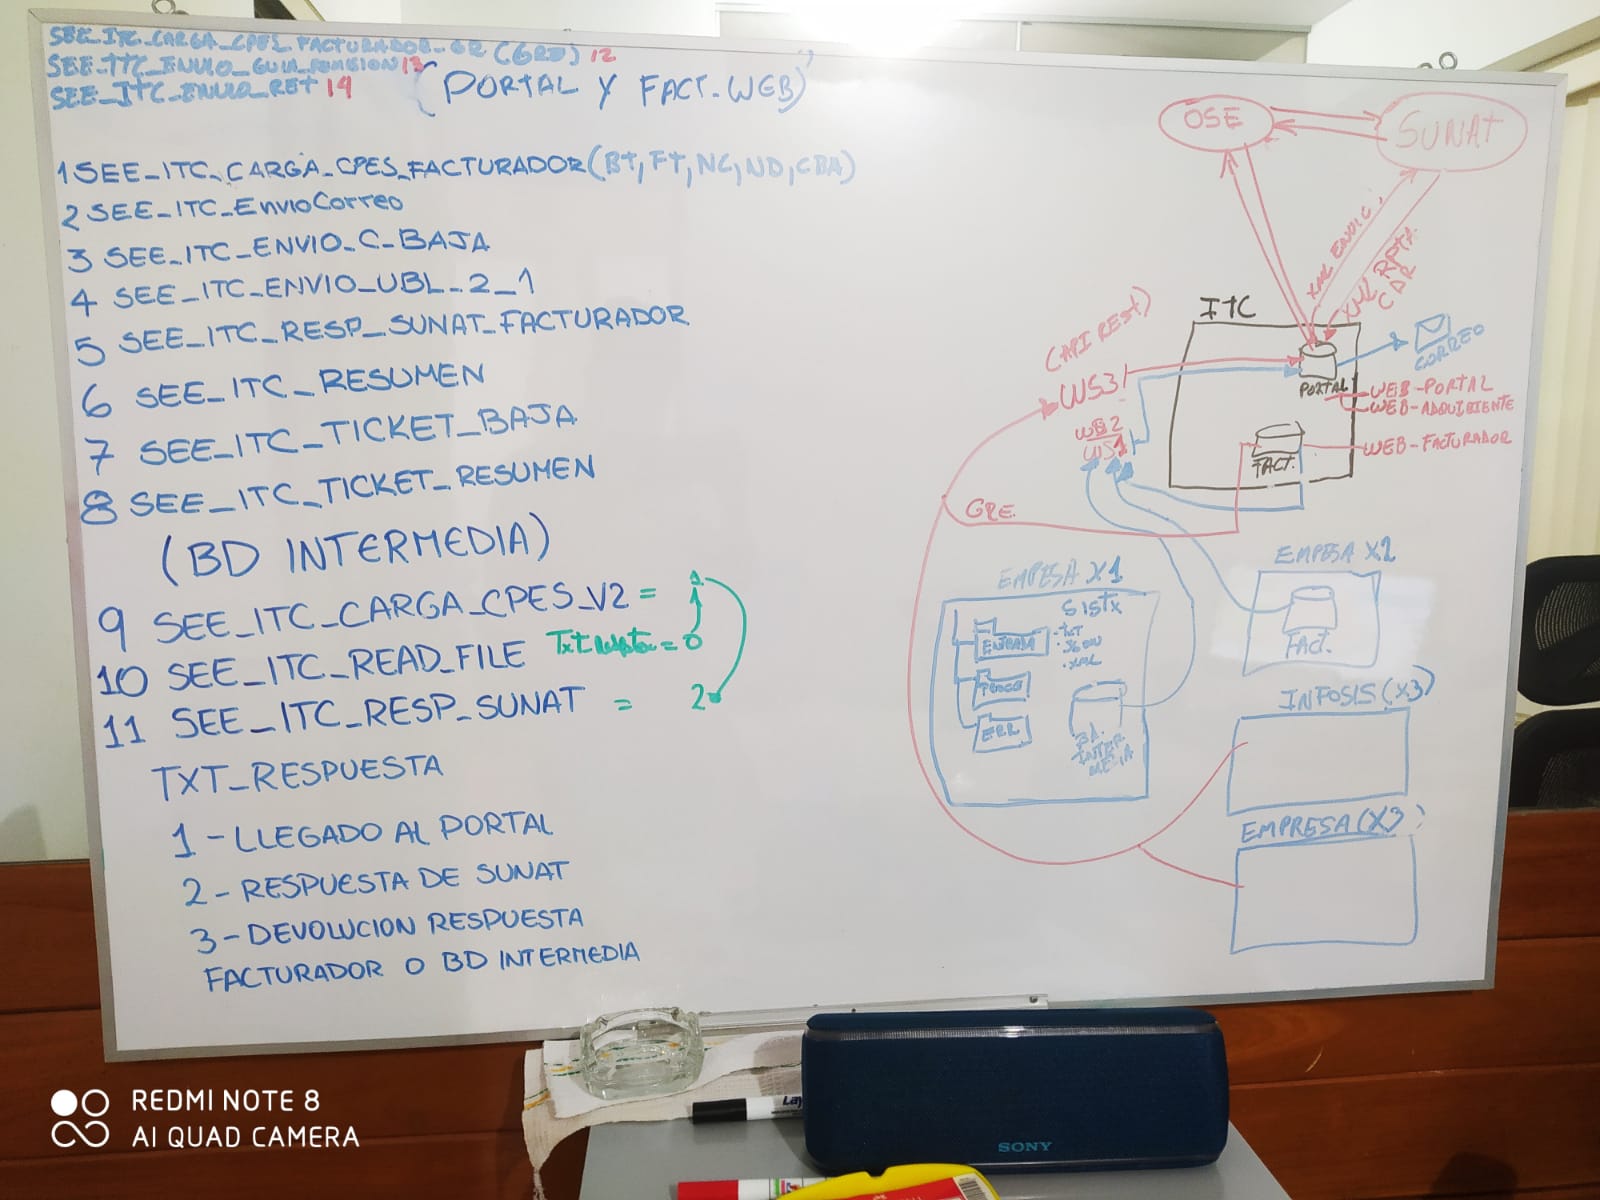 SEE_ITC_CARGA_CPES_FACTURADOR_GR (GRE) 12
SEE_ITC_ENVIO_GUIA_REMISION 13
SEE_ITC_ENVIO_RET 14
(PORTAL Y FACT. WEB)
1 SEE_ITC_CARGA_CPES_FACTURADOR(Bt, Ft, NC, ND, CBA)
2 SEE_ITC_EnvioCorreo
3 SEE_ITC_ENVIO_C_BAJA
4 SEE_ITC_ENVIO_UBL_2_1
5 SEE_ITC_RESP_SUNAT_FACTURADOR
6 SEE_ITC_RESUMEN
7 SEE_ITC_TICKET_BAJA
8 SEE_ITC_TICKET_RESUMEN
(BD INTERMEDIA)
9 SEE_ITC_CARGA_CPES_V2 = 1
10 SEE_ITC_READ_FILE Txt = 0
11 SEE_ITC_RESP_SUNAT = 2
TXT_RESPUESTA
1 - LLEGADO AL PORTAL
2 - RESPUESTA DE SUNAT
3 - DEVOLUCION RESPUESTA
FACTURADOR O BD INTERMEDIA
OSE
SUNAT
XML ENVIO
XML RPTA
CDR
ITC
(API REST)
WS3
WS2
WS1
PORTAL
CORREO
WEB-PORTAL
WEB-ADQUIRIENTE
FACT.
WEB-FACTURADOR
GRE
EMPESA X1
SISTX
ENTRADA
.TXT
.JSON
.XML
ERR
BD.
INTER
MEDIA
EMPESA X2
FACT.
INFOSIS (X3)
EMPRESA (X3)
REDMI NOTE 8
AI QUAD CAMERA
SONY